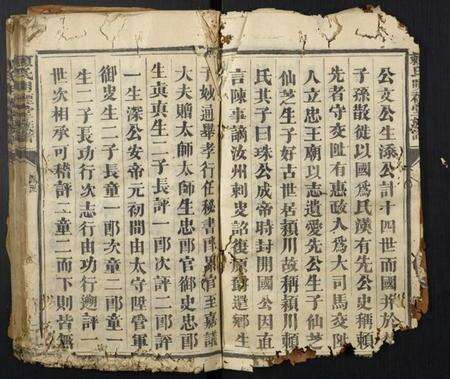 公文公生添公計十四世而國并於
子孫散徙以國爲氏漢有先公史稱賴
先者守交趾有惠政人爲大司馬交趾
人立忠王廟以志遺愛先公生子仙芝
仙芝生子好古世居潁川故稱潁川賴
氏其子曰珠公成帝時封開國公因直
言陳事謫汝州刺史詔復原勳還鄉生
子妙通舉孝行任秘書郎累官至嘉議
大夫贈太師太師生忠郎官御史忠郎
生奭奭生二子長評一郎次評二郎評
一生深公安帝元初間由太守陞管軍
御叟生二子長童一郎次童二郎童一
生二子長功行次志行由功行遡評一
世次相承可稽評二童二而下則皆無